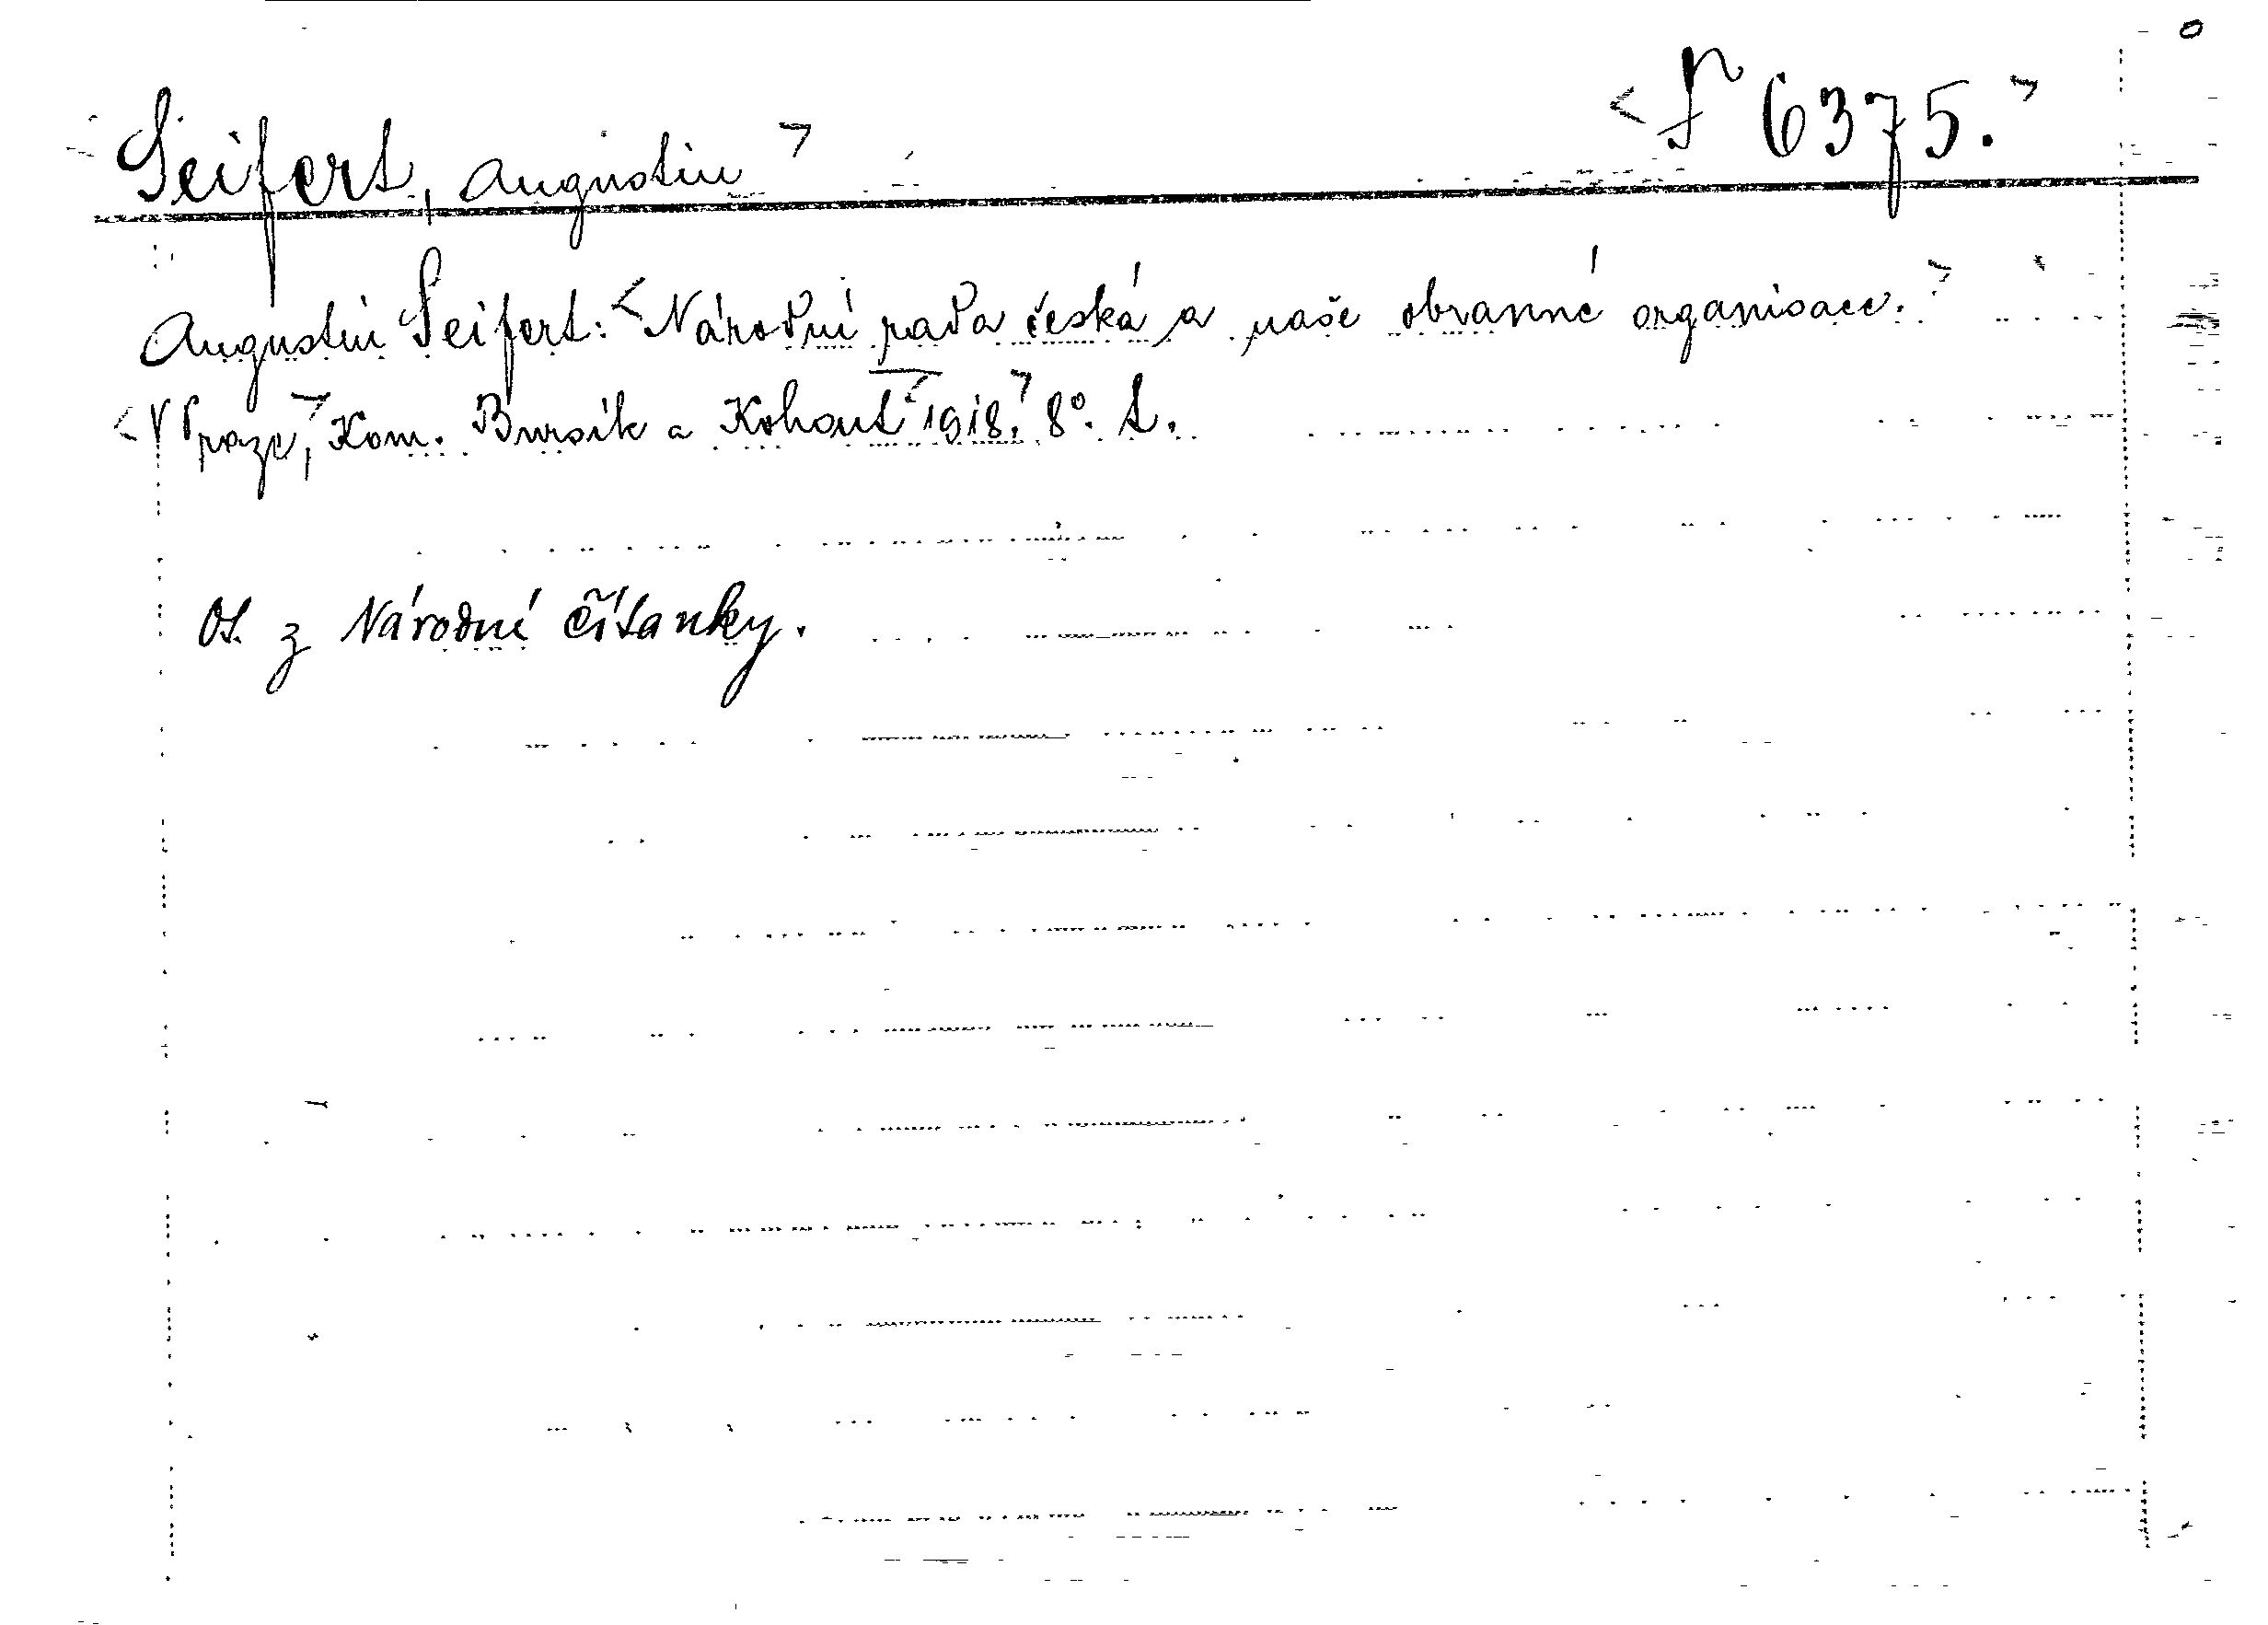 Seifert, Augustin <P 6375.>
Augustin Seifert: <Národní rada česká a naše obranné organisace.>
<V Praze,> Kom. Bursík a Kohout <1918.> 8°. t.
Ot. z Národní čítanky.